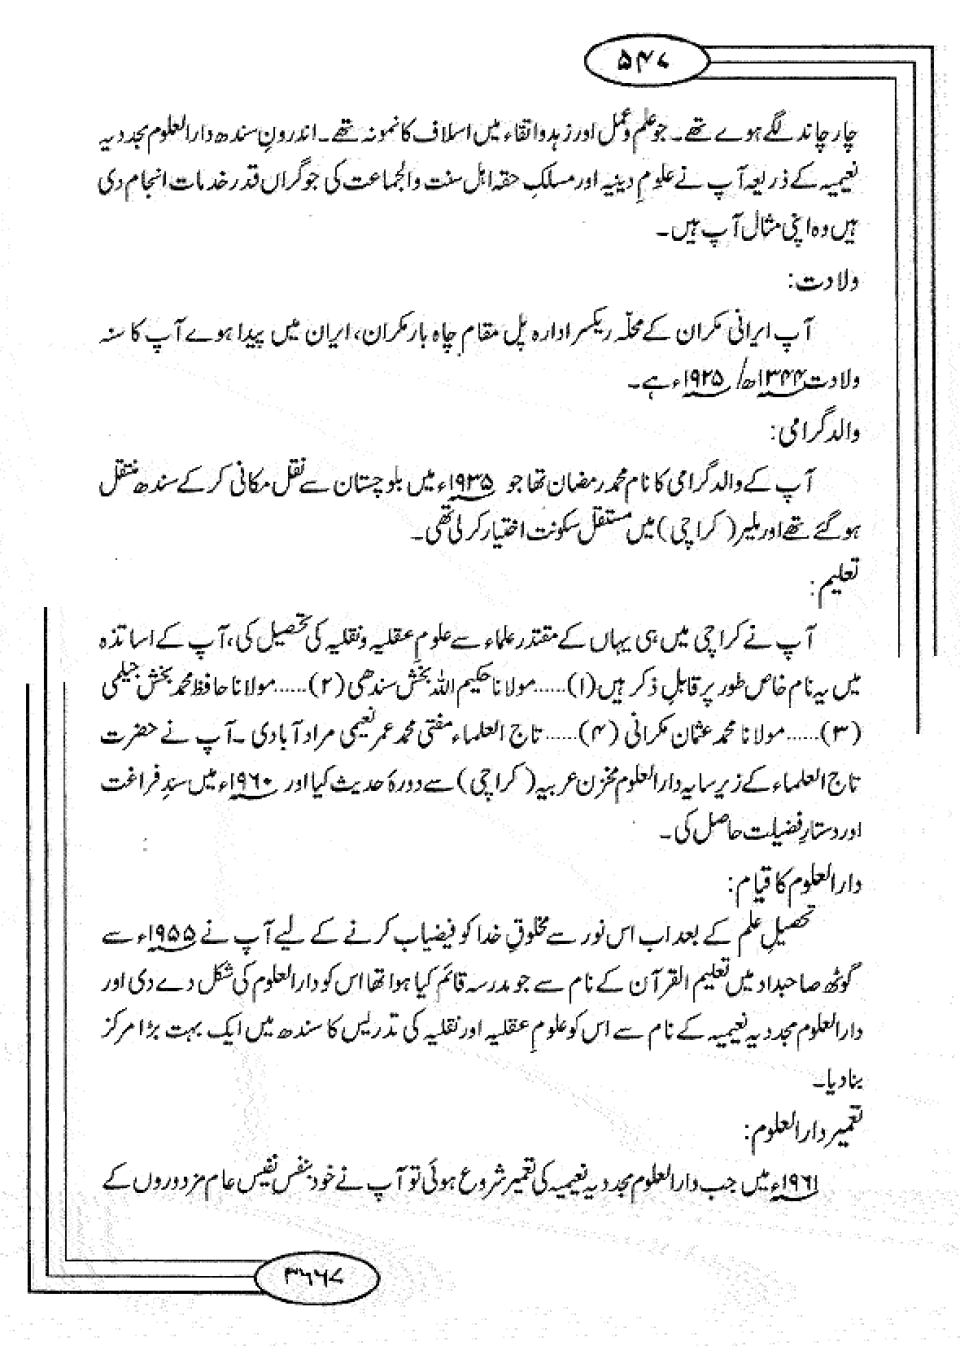 ۵۴۷
چار چاند لگے ہوے تھے۔ جو علم و عمل اور زہد و اتقاء میں اسلاف کا نمونہ تھے۔ اندرونِ سندھ دارالعلوم مجددیہ
نعیمیہ کے ذریعہ آپ نے علومِ دینیہ اور مسلکِ حقہ اہل سنت والجماعت کی جو گراں قدر خدمات انجام دی
ہیں وہ اپنی مثال آپ ہیں۔
ولادت:
آپ ایرانی مکران کے محلّہ ریکسر ادارہ پل مقام چاہ بار مکران، ایران میں پیدا ہوے آپ کا سنہ
ولادت ۱۳۴۴ھ/ ۱۹۲۵ء ہے۔
والد گرامی:
آپ کے والد گرامی کا نام محمد رمضان تھا جو ۱۹۳۵ء میں بلوچستان سے نقل مکانی کر کے سندھ منتقل
ہوگئے تھے اور ملیر (کراچی) میں مستقل سکونت اختیار کر لی تھی۔
تعلیم:
آپ نے کراچی میں ہی یہاں کے مقتدر علماء سے علومِ عقلیہ و نقلیہ کی تحصیل کی، آپ کے اساتذہ
میں یہ نام خاص طور پر قابلِ ذکر ہیں (۱)......مولانا حکیم اللہ بخش سندھی (۲)......مولانا حافظ محمد بخش جہلمی
(۳)......مولانا محمد عثمان مکرانی (۴)......تاج العلماء مفتی محمد عمر نعیمی مراد آبادی ۔ آپ نے حضرت
تاج العلماء کے زیر سایہ دارالعلوم مخزن عربیہ (کراچی) سے دورۂ حدیث کیا اور ۱۹۶۰ء میں سندِ فراغت
اور دستارِ فضیلت حاصل کی۔
دارالعلوم کا قیام:
تحصیلِ علم کے بعد اب اس نور سے مخلوقِ خدا کو فیضیاب کرنے کے لیے آپ نے ۱۹۵۵ء سے
گوٹھ صاحبداد میں تعلیم القرآن کے نام سے جو مدرسہ قائم کیا ہوا تھا اس کو دارالعلوم کی شکل دے دی اور
دارالعلوم مجددیہ نعیمیہ کے نام سے اس کو علومِ عقلیہ اور نقلیہ کی تدریس کا سندھ میں ایک بہت بڑا مرکز
بنادیا۔
تعمیر دارالعلوم:
۱۹۶۱ء میں جب دارالعلوم مجددیہ نعیمیہ کی تعمیر شروع ہوئی تو آپ نے خود بنفس نفیس عام مزدوروں کے
۳۶۶۷